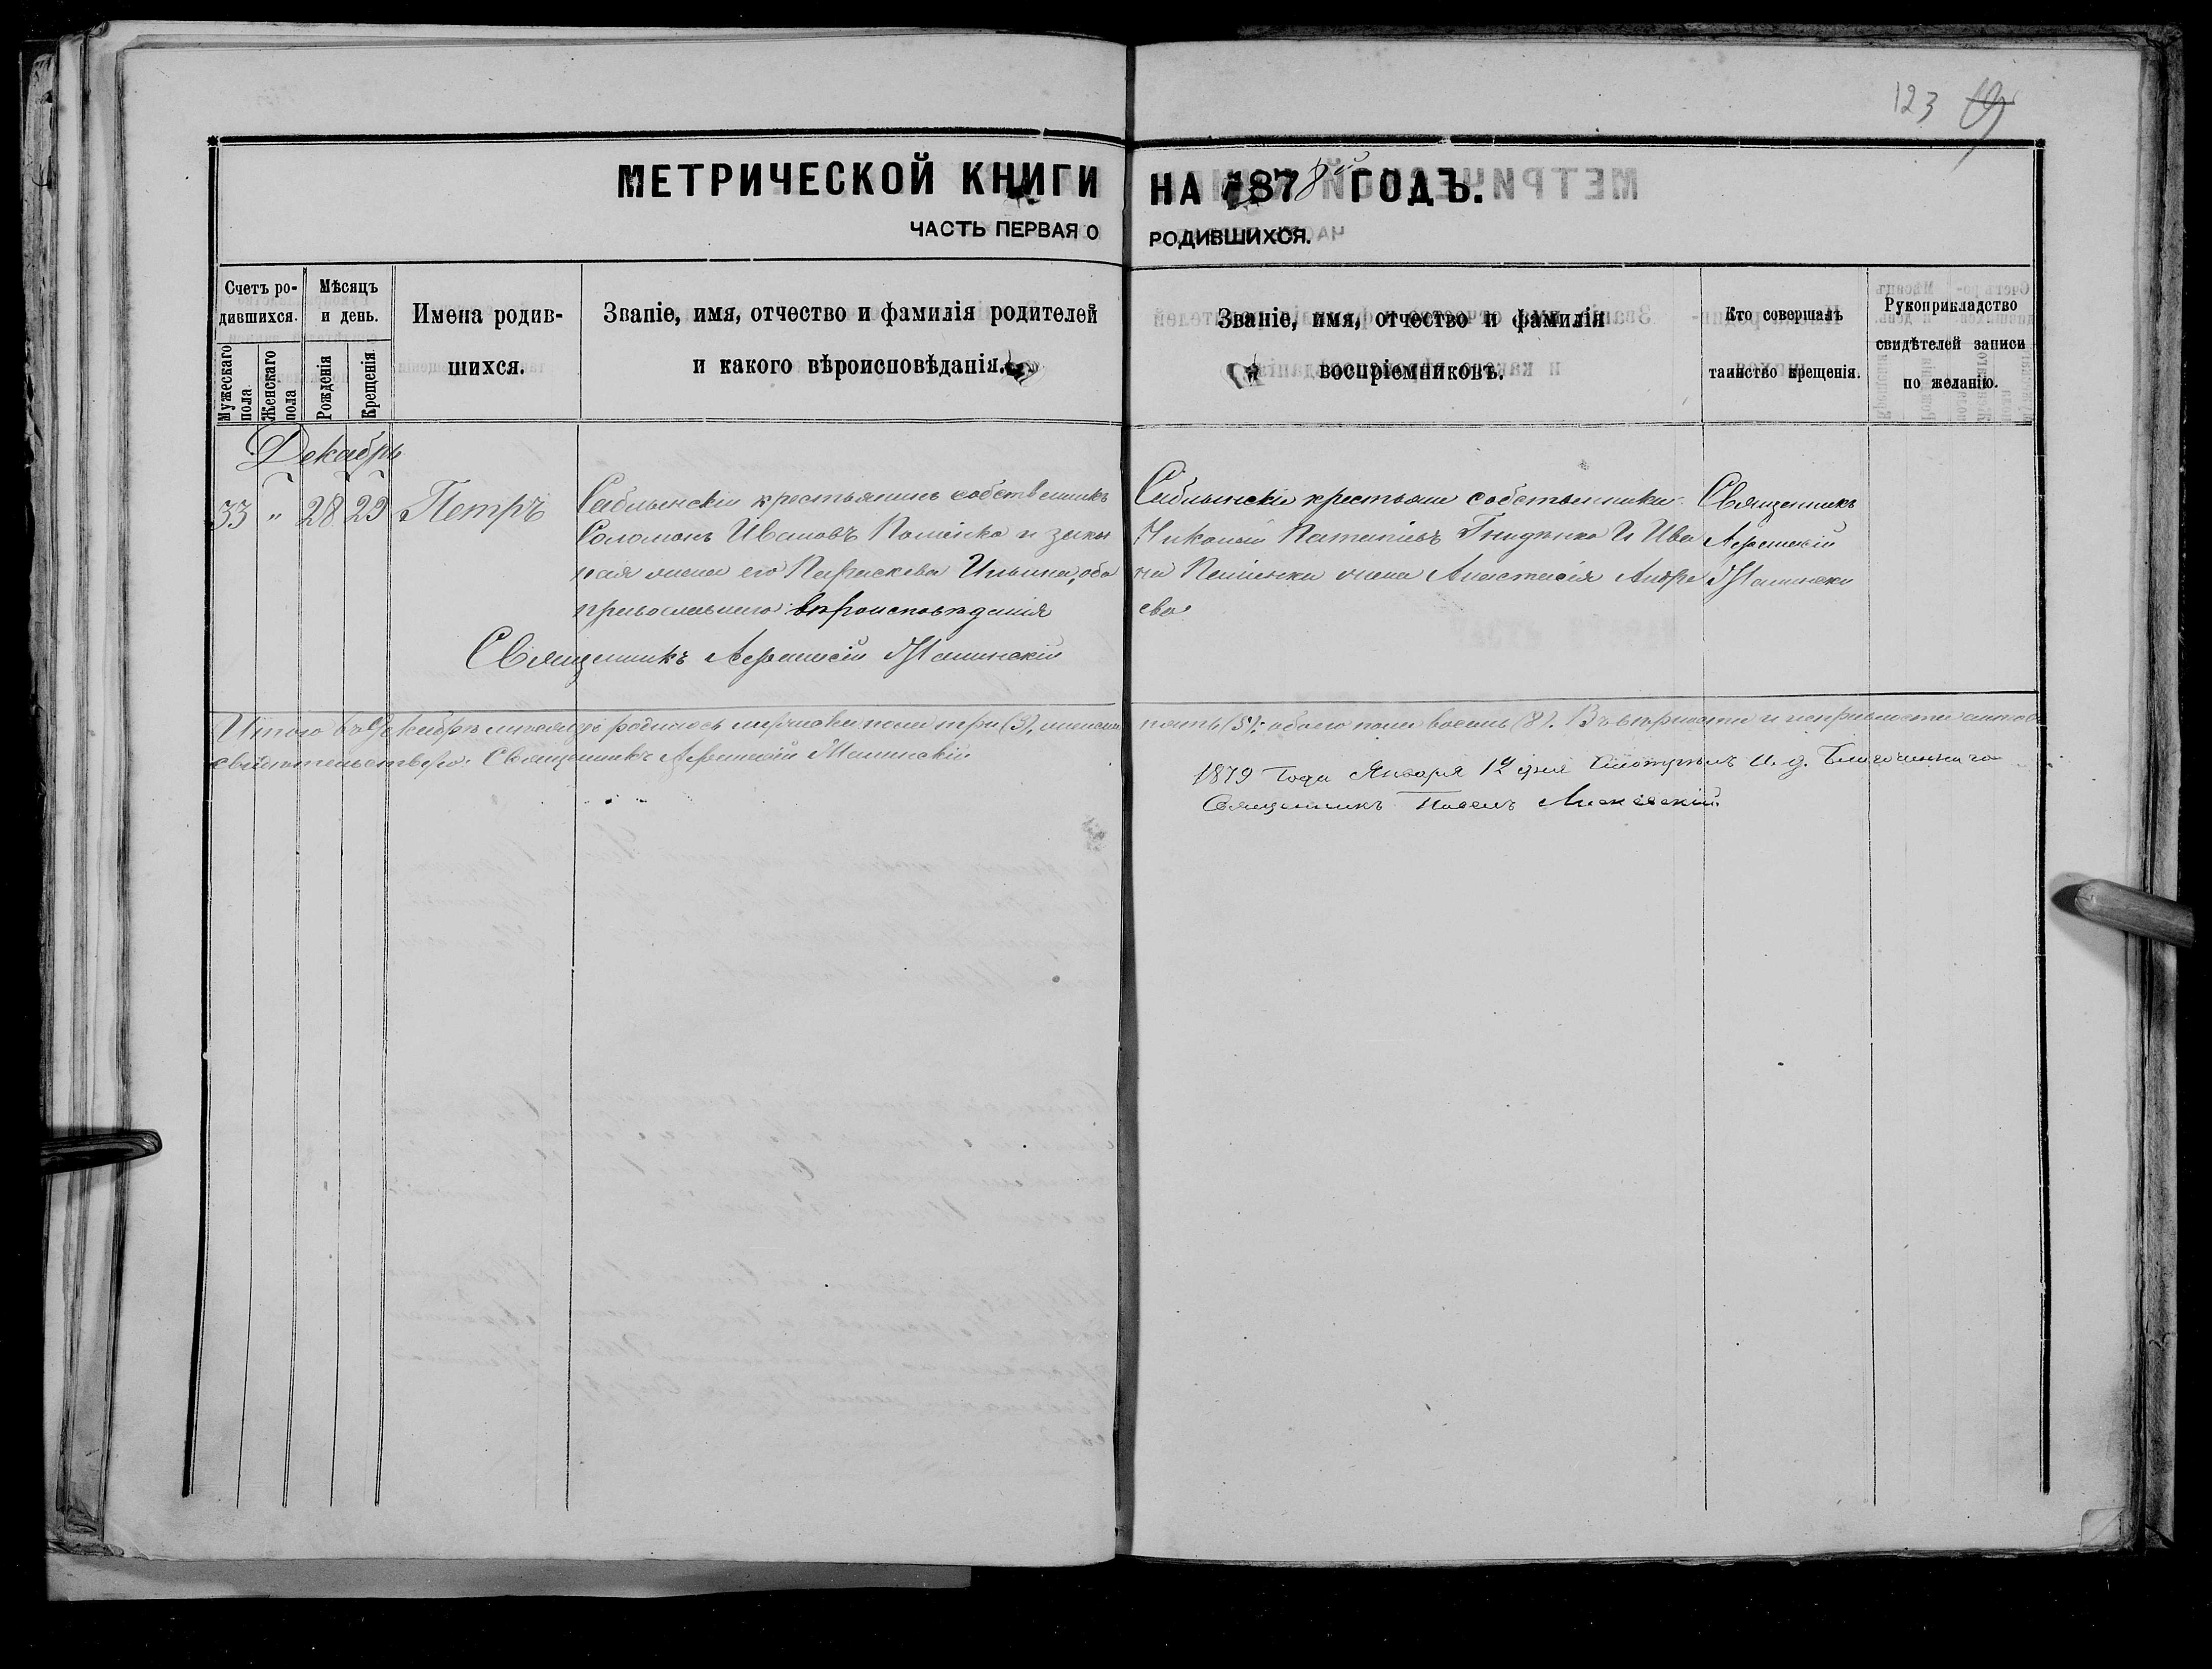 123
МЕТРИЧЕСКОЙ КНИГИ НА 1878й ГОДЪ.
ЧАСТЬ ПЕРВАЯ О РОДИВШИХСЯ.
Счетъ ро-
дившихся.
Мужескаго пола
Женскаго пола
Мѣсяцъ
и день.
Рожденія
Крещенія.
Имена родив-
шихся.
Званіе, имя, отчество и фамилія родителей
и какого вѣроисповѣданія.
Званіе, имя, отчество и фамилія
воспріемниковъ.
Кто совершалъ
таинство крещенія.
Рукоприкладство
свидѣтелей записи
по желанію.
Декабрь
33 " 28 29 Петръ
крестьянинъ собственникъ
Соломонъ Ивановъ и закон
ная жена его Параскева Ильина, оба
православнаго вѣроисповѣданія
крестьяне собственники
Николай и Ива
на жена Анастасія Андре
ева
Священникъ
Священникъ
Итого въ Декабрѣ мѣсяцѣ родилось мужеска пола три (3), женска
пять (5); обоего пола восемь (8). Въ вѣрности и исправности
свидѣтельствую: Священникъ
1879 года Января 12 дня Смотрѣлъ И. д. Благочиннаго
Священникъ Павелъ